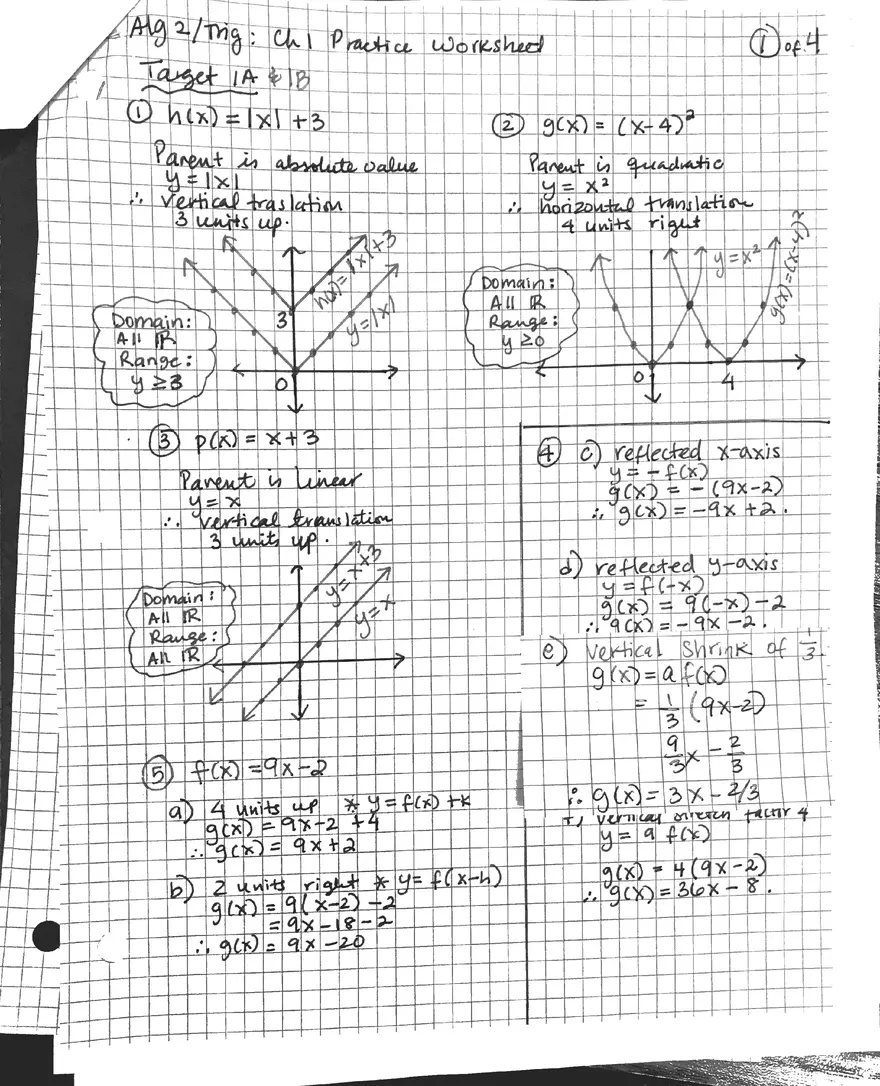 Alg 2/Trig: Ch 1 Practice Worksheet
① of 4
Target 1A & 1B
① h(x) = |x| + 3
Parent is absolute value
y = |x|
∴ vertical traslation
3 units up.
h(x) = |x| + 3
y = |x|
3
0
Domain:
All ℝ
Range:
y ≥ 3
② g(x) = (x-4)²
Parent is quadratic
y = x²
∴ horizontal translation
4 units right
y = x²
g(x) = (x-4)²
Domain:
All ℝ
Range:
y ≥ 0
0
4
③ p(x) = x + 3
Parent is linear
y = x
∴ vertical translation
3 units up.
y = x
Domain:
All ℝ
Range:
All ℝ
④ c) reflected x-axis
y = - f(x)
g(x) = - (9x-2)
∴ g(x) = -9x + 2.
d) reflected y-axis
y = f(-x)
g(x) = 9(-x) - 2
∴ g(x) = -9x - 2.
e) vertical shrink of 1/3.
g(x) = a f(x)
= 1/3 (9x-2)
9/3 x - 2/3
∴ g(x) = 3x - 2/3
f) vertical stretch factor 4
y = a f(x)
g(x) = 4(9x-2)
∴ g(x) = 36x - 8.
⑤ f(x) = 9x - 2
a) 4 units up * y = f(x) + k
g(x) = 9x - 2 + 4
∴ g(x) = 9x + 2
b) 2 units right * y = f(x-h)
g(x) = 9(x-2) - 2
= 9x - 18 - 2
∴ g(x) = 9x - 20